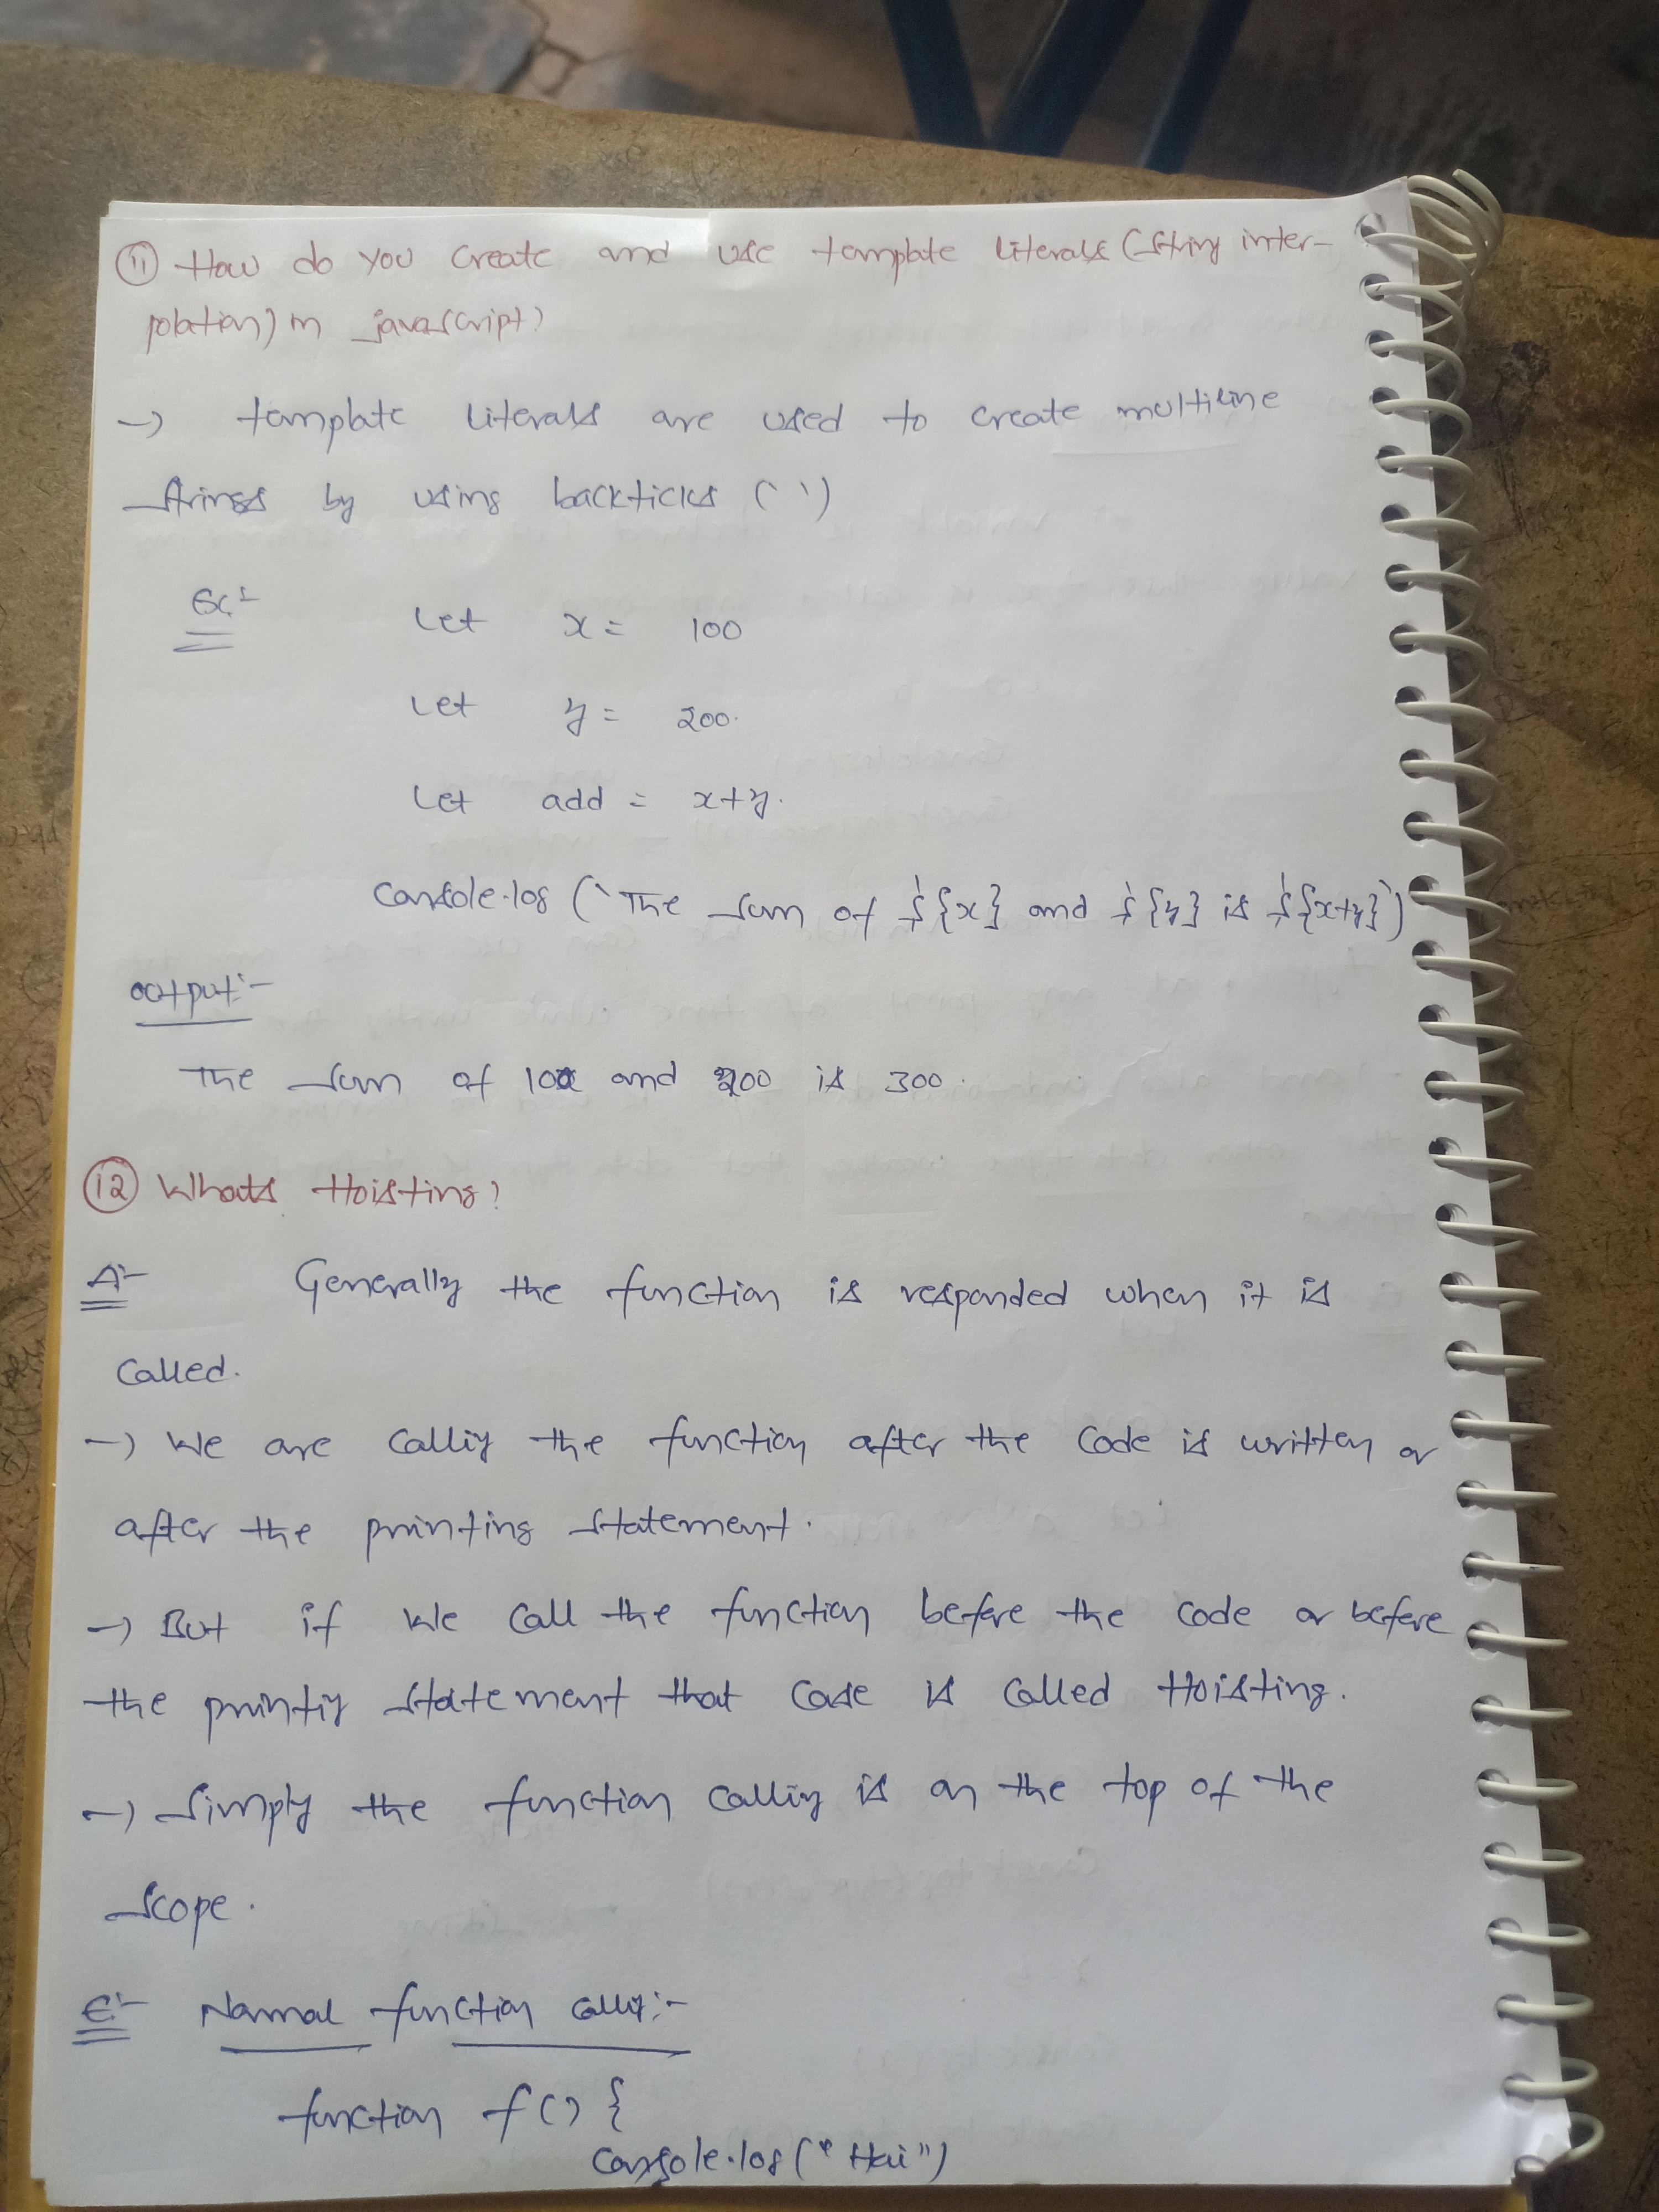 11 How do you create and use template literals (string inter-
polation) in javascript?
→ template literals are used to create multiline
strings by using backticks (` `)
Ex:-
let x = 100
let y = 200.
let add = x+y.
console.log (`The sum of ${x} and ${y} is ${x+y}`)
output:-
The sum of 100 and 200 is 300.
12 Whats Hoisting?
A:- Generally the function is responded when it is
called.
→ We are calling the function after the code is written or
after the printing statement.
→ But if we call the function before the code or before
the printing statement that case is called Hoisting.
→ Simply the function calling is on the top of the
scope.
E:- Normal function calling:-
function f() {
console.log("Hai")